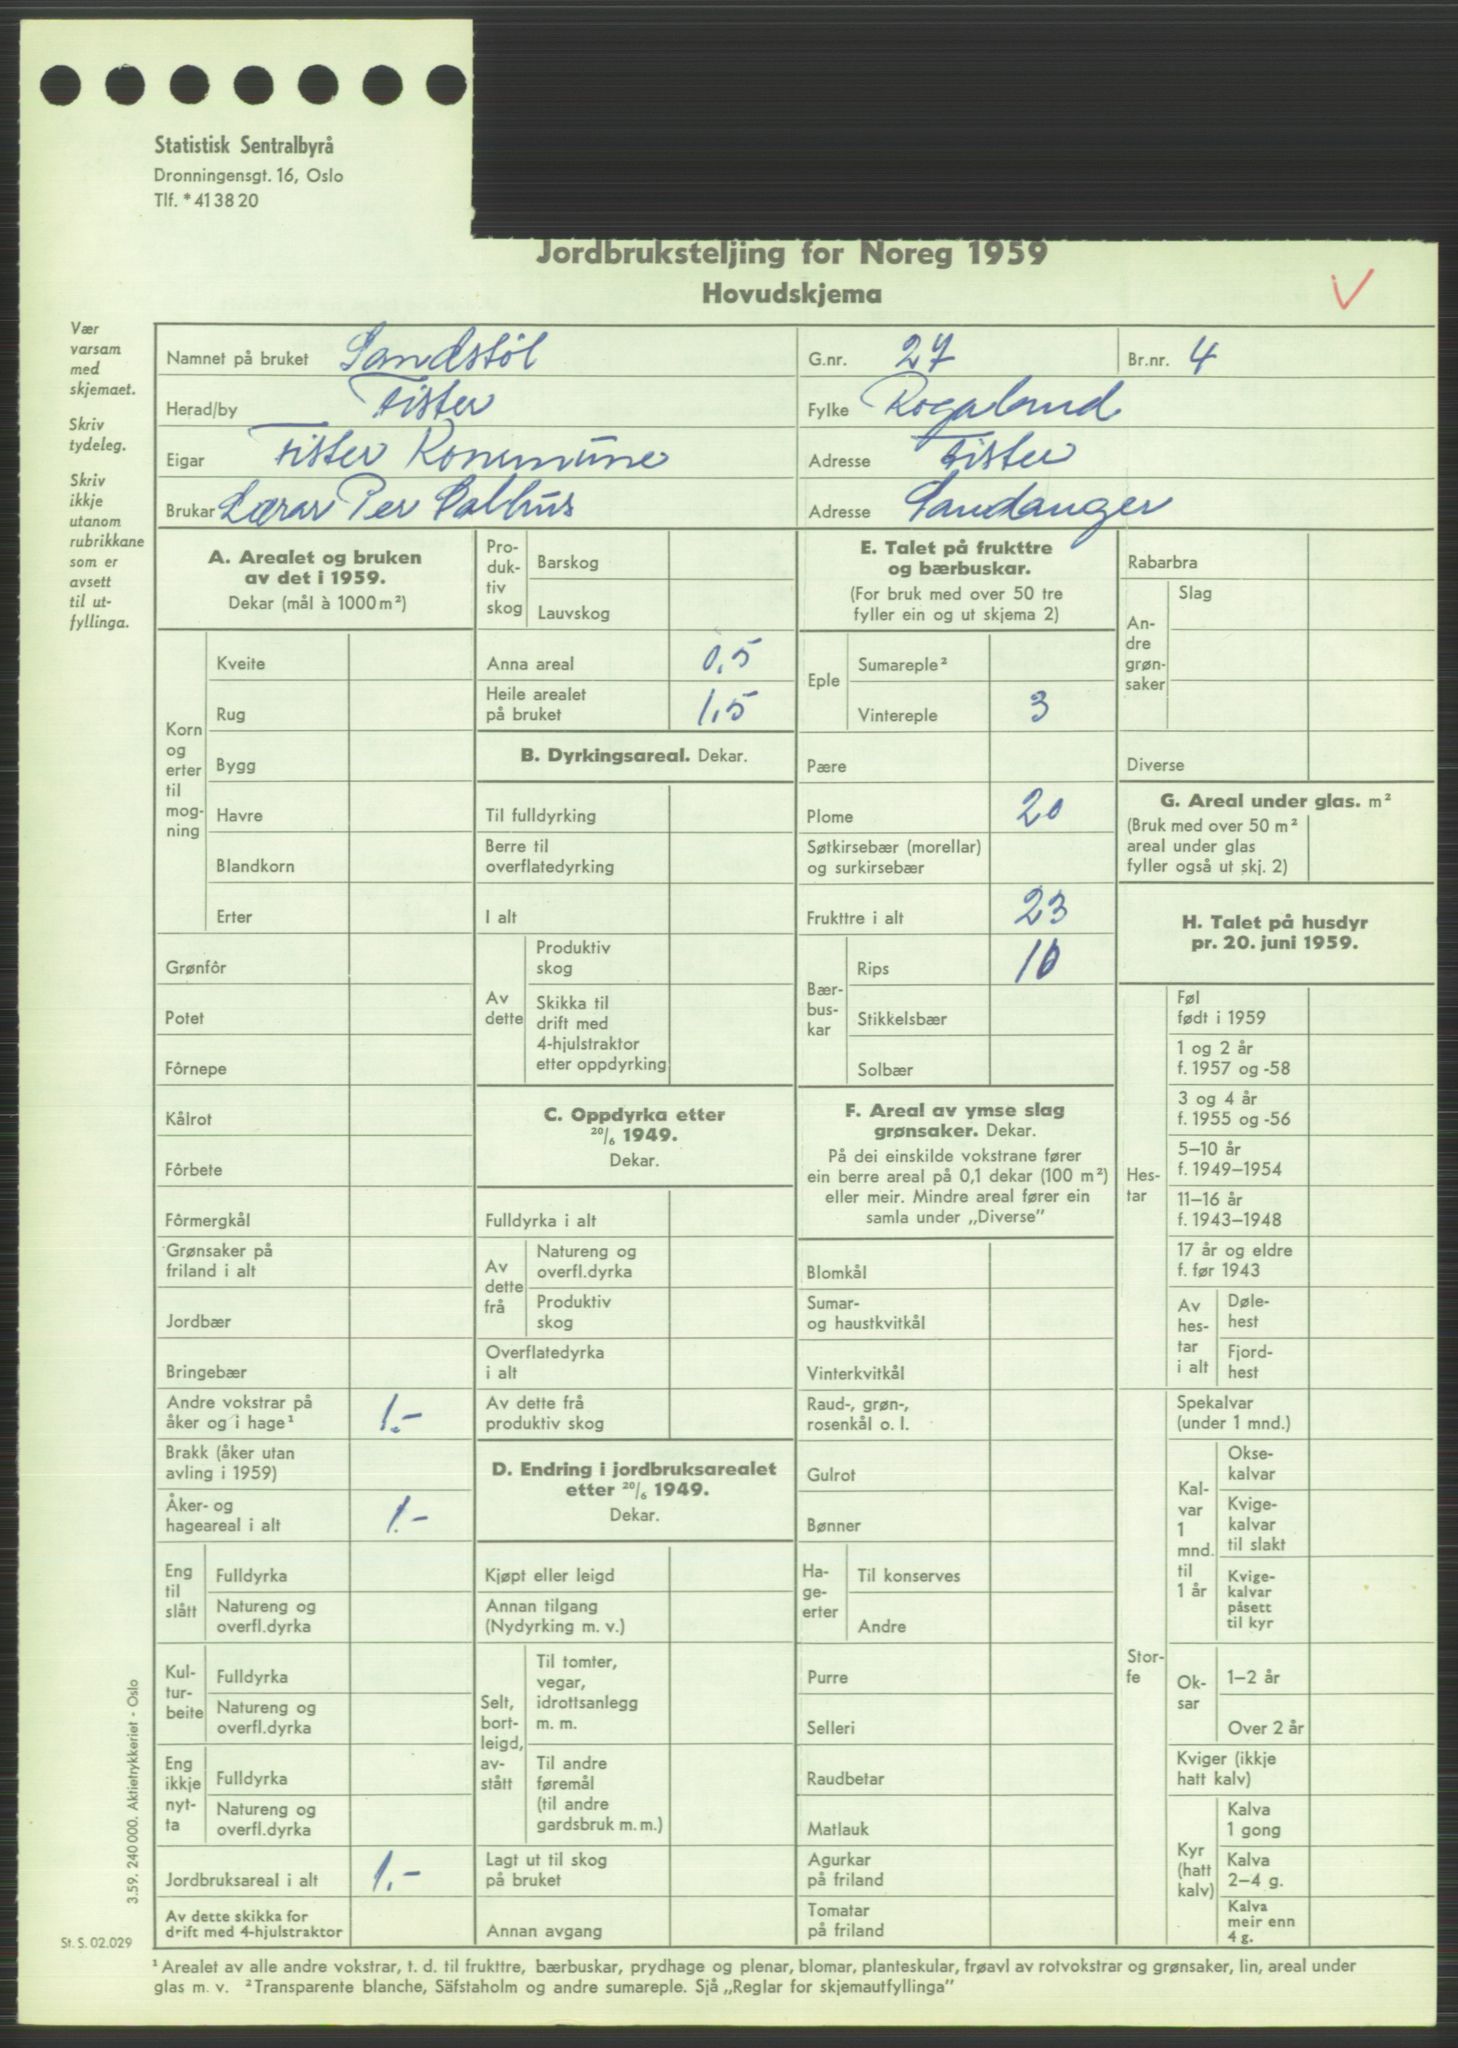 Statistisk Sentralbyrå
Dronningensgt. 16, Oslo
Tlf. *41 38 20
Jordbruksteljing for Noreg 1959
Hovudskjema
Vær
varsam
med
skjemaet.
Skriv
tydeleg.
Skriv
ikkje
utanom
rubrikkane
som er
avsett
til ut-
fyllinga.
Namnet på bruket Sandstöl G.nr. 27 Br.nr. 4
Herad/by Fister Fylke Rogaland
Eigar Fister Kommune Adresse Fister
Brukar Lærar Per Salhus Adresse Sandanger
A. Arealet og bruken
av det i 1959.
Dekar (mål à 1000 m²)
Korn
og
erter
til
mog-
ning
Kveite
Rug
Bygg
Havre
Blandkorn
Erter
Grønfôr
Potet
Fôrnepe
Kålrot
Fôrbete
Fôrmergkål
Grønsaker på
friland i alt
Jordbær
Bringebær
Andre vokstrar på
åker og i hage¹ 1.-
Brakk (åker utan
avling i 1959)
Åker- og
hageareal i alt 1.-
Eng
til
slått
Fulldyrka
Natureng og
overfl.dyrka
Kul-
tur-
beite
Fulldyrka
Natureng og
overfl.dyrka
Eng
ikkje
nyt-
ta
Fulldyrka
Natureng og
overfl.dyrka
Jordbruksareal i alt 1.-
Av dette skikka for
drift med 4-hjulstraktor
Pro-
duk-
tiv
skog
Barskog
Lauvskog
Anna areal 0,5
Heile arealet
på bruket 1,5
B. Dyrkingsareal. Dekar.
Til fulldyrking
Berre til
overflatedyrking
I alt
Av
dette
Produktiv
skog
Skikka til
drift med
4-hjulstraktor
etter oppdyrking
C. Oppdyrka etter
20/6 1949.
Dekar.
Fulldyrka i alt
Av
dette
frå
Natureng og
overfl.dyrka
Produktiv
skog
Overflatedyrka
i alt
Av dette frå
produktiv skog
D. Endring i jordbruksarealet
etter 20/6 1949.
Dekar.
Kjøpt eller leigd
Annan tilgang
(Nydyrking m. v.)
Selt,
bort-
leigd,
av-
stått
Til tomter,
vegar,
idrottsanlegg
m. m.
Til andre
føremål
(til andre
gardsbruk m. m.)
Lagt ut til skog
på bruket
Annan avgang
E. Talet på frukttre
og bærbuskar.
(For bruk med over 50 tre
fyller ein og ut skjema 2)
Eple
Sumareple²
Vintereple 3
Pære
Plome 20
Søtkirsebær (morellar)
og surkirsebær
Frukttre i alt 23
Bær-
bus-
kar
Rips 10
Stikkelsbær
Solbær
F. Areal av ymse slag
grønsaker. Dekar.
På dei einskilde vokstrane fører
ein berre areal på 0,1 dekar (100 m²)
eller meir. Mindre areal fører ein
samla under „Diverse”
Blomkål
Sumar-
og haustkvitkål
Vinterkvitkål
Raud-, grøn-,
rosenkål o. l.
Gulrot
Bønner
Ha-
ge-
erter
Til konserves
Andre
Purre
Selleri
Raudbetar
Matlauk
Agurkar
på friland
Tomatar
på friland
Rabarbra
An-
dre
grøn-
saker
Slag
Diverse
G. Areal under glas. m²
(Bruk med over 50 m²
areal under glas
fyller også ut skj. 2)
H. Talet på husdyr
pr. 20. juni 1959.
Hes-
tar
Føl
født i 1959
1 og 2 år
f. 1957 og -58
3 og 4 år
f. 1955 og -56
5–10 år
f. 1949–1954
11–16 år
f. 1943–1948
17 år og eldre
f. før 1943
Av
hes-
tar
i alt
Døle-
hest
Fjord-
hest
Stor-
fe
Spekalvar
(under 1 mnd.)
Kal-
var
1
mnd.
til
1 år
Okse-
kalvar
Kvige-
kalvar
til slakt
Kvige-
kalvar
påsett
til kyr
Ok-
sar
1–2 år
Over 2 år
Kviger (ikkje
hatt kalv)
Kyr
(hatt
kalv)
Kalva
1 gong
Kalva
2–4 g.
Kalva
meir enn
4 g.
3.59. 240 000. Aktietrykkeriet - Oslo
St. S. 02.029
¹ Arealet av alle andre vokstrar, t. d. til frukttre, bærbuskar, prydhage og plenar, blomar, planteskular, frøavl av rotvokstrar og grønsaker, lin, areal under
glas m. v. ² Transparente blanche, Säfstaholm og andre sumareple. Sjå „Reglar for skjemautfyllinga”